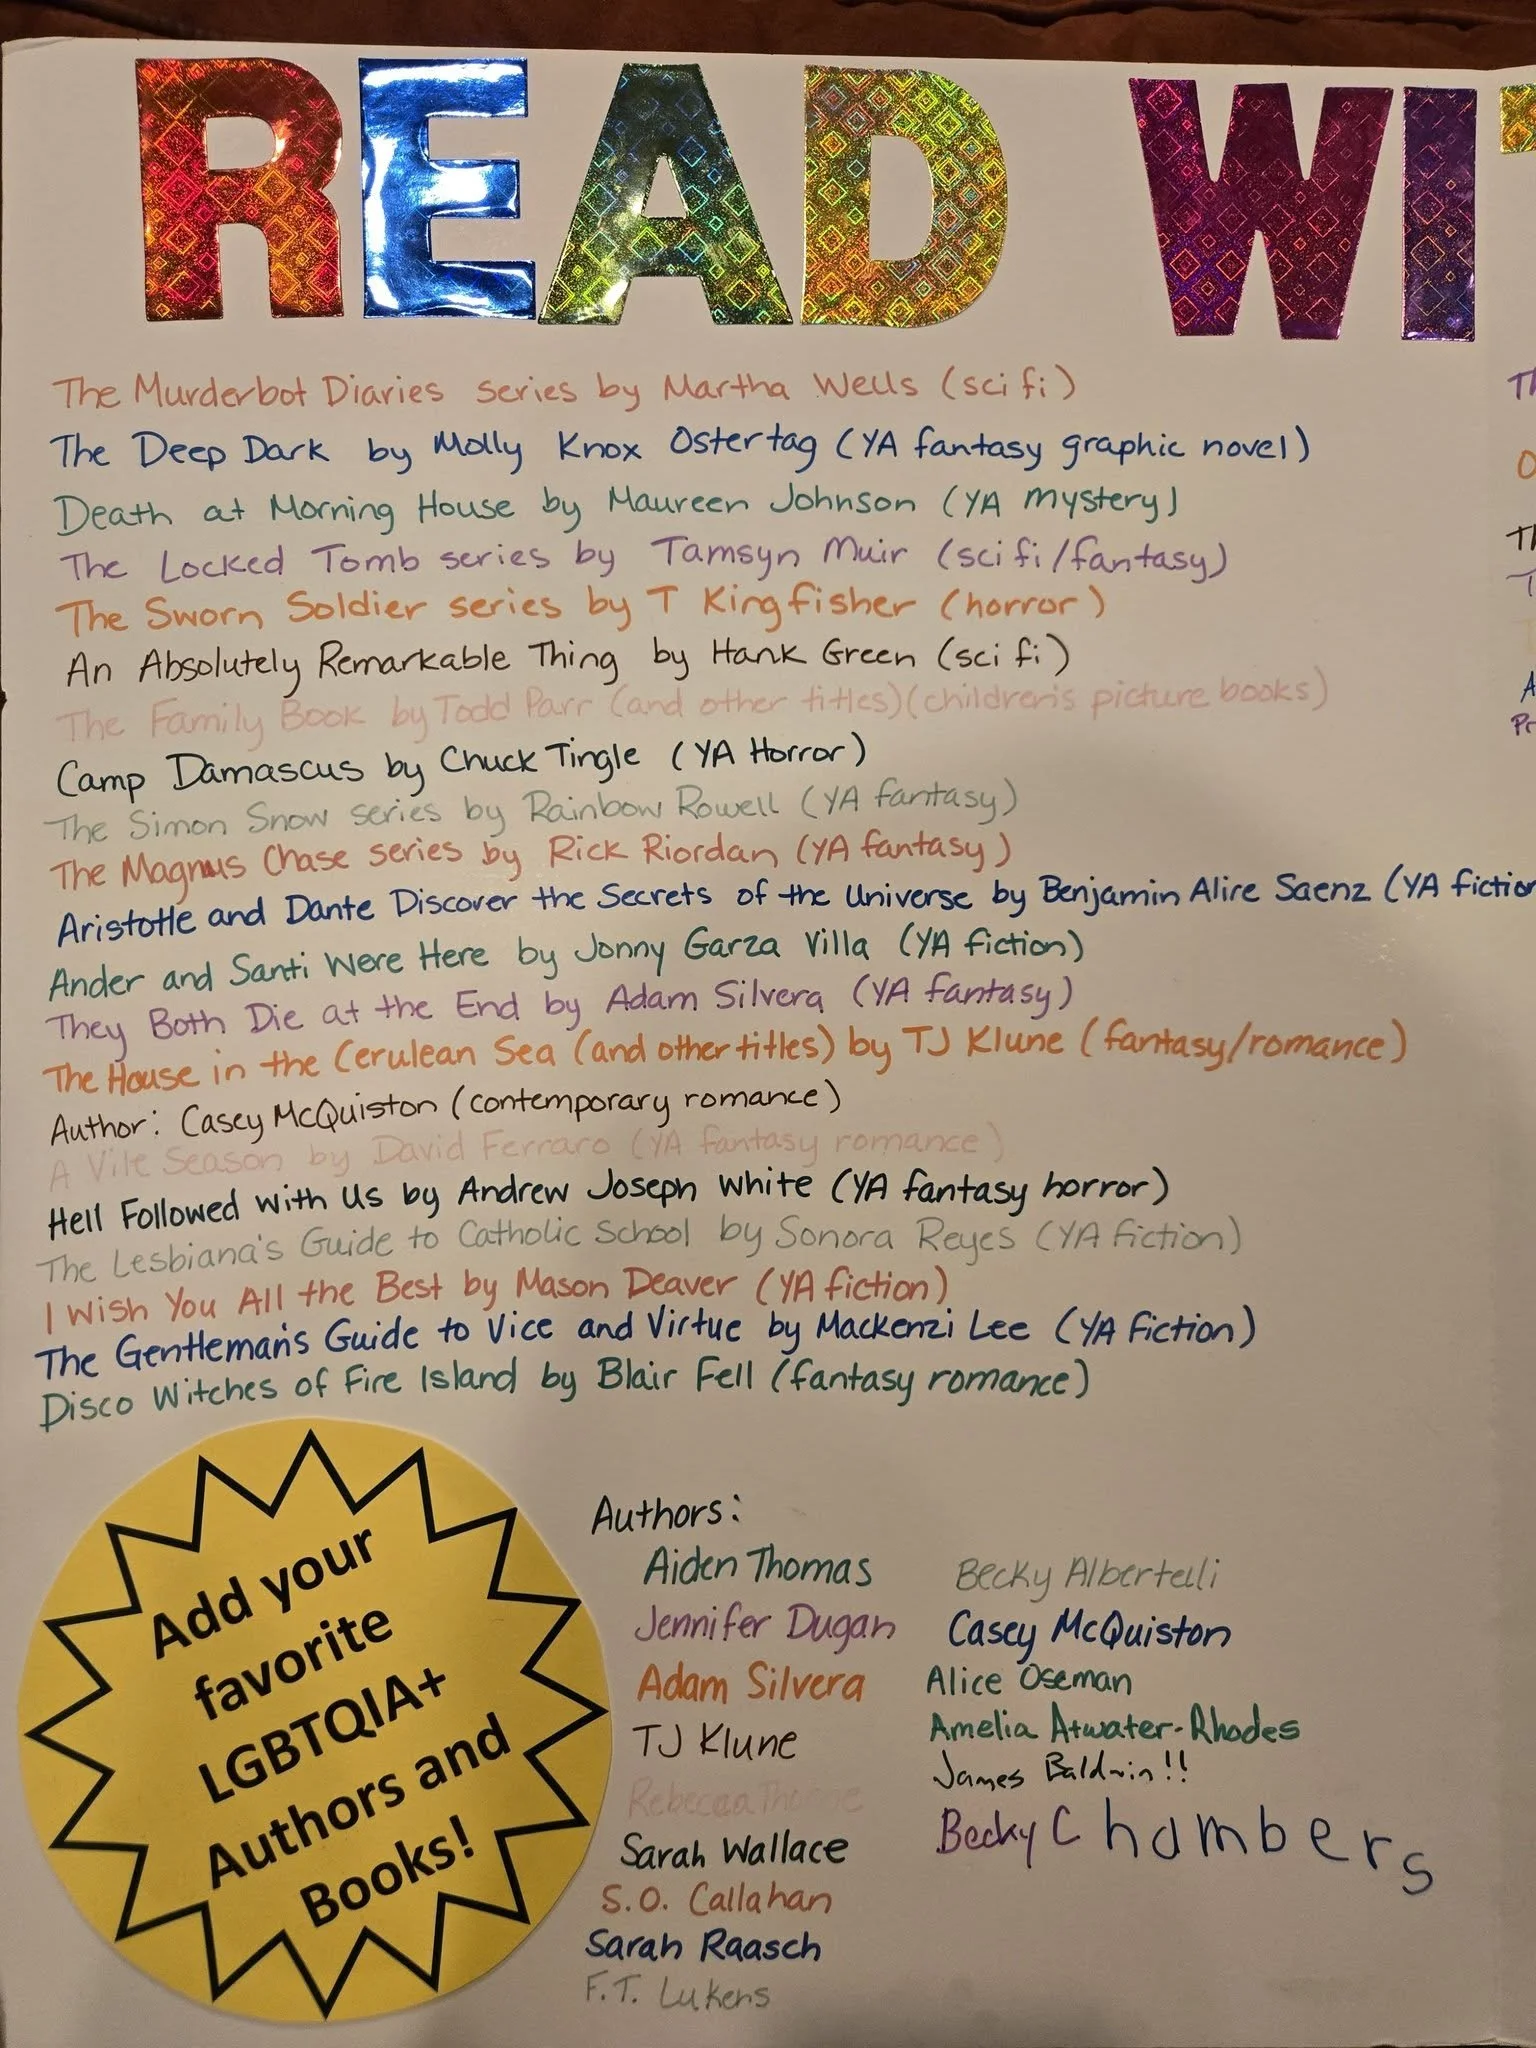 READ WIT
The Murderbot Diaries series by Martha Wells (sci fi)
The Deep Dark by Molly Knox Ostertag (YA fantasy graphic novel)
Death at Morning House by Maureen Johnson (YA mystery)
The Locked Tomb series by Tamsyn Muir (sci fi/fantasy)
The Sworn Soldier series by T Kingfisher (horror)
An Absolutely Remarkable Thing by Hank Green (sci fi)
The Family Book by Todd Parr (and other titles)(children's picture books)
Camp Damascus by Chuck Tingle (YA Horror)
The Simon Snow series by Rainbow Rowell (YA fantasy)
The Magnus Chase series by Rick Riordan (YA fantasy)
Aristotle and Dante Discover the Secrets of the Universe by Benjamin Alire Saenz (YA fiction
Ander and Santi Were Here by Jonny Garza Villa (YA fiction)
They Both Die at the End by Adam Silvera (YA fantasy)
The House in the Cerulean Sea (and other titles) by TJ Klune (fantasy/romance)
Author: Casey McQuiston (contemporary romance)
A Vile Season by David Ferraro (YA fantasy romance)
Hell Followed with Us by Andrew Joseph White (YA fantasy horror)
The Lesbiana's Guide to Catholic School by Sonora Reyes (YA fiction)
I Wish You All the Best by Mason Deaver (YA fiction)
The Gentleman's Guide to Vice and Virtue by Mackenzi Lee (YA fiction)
Disco Witches of Fire Island by Blair Fell (fantasy romance)
Add your
favorite
LGBTQIA+
Authors and
Books!
Authors:
Aiden Thomas
Jennifer Dugan
Adam Silvera
TJ Klune
Rebecca
Sarah Wallace
S.O. Callahan
Sarah Raasch
F.T. Lukens
Becky Albertelli
Casey McQuiston
Alice Oseman
Amelia Atwater-Rhodes
James Baldwin!!
Becky Chambers